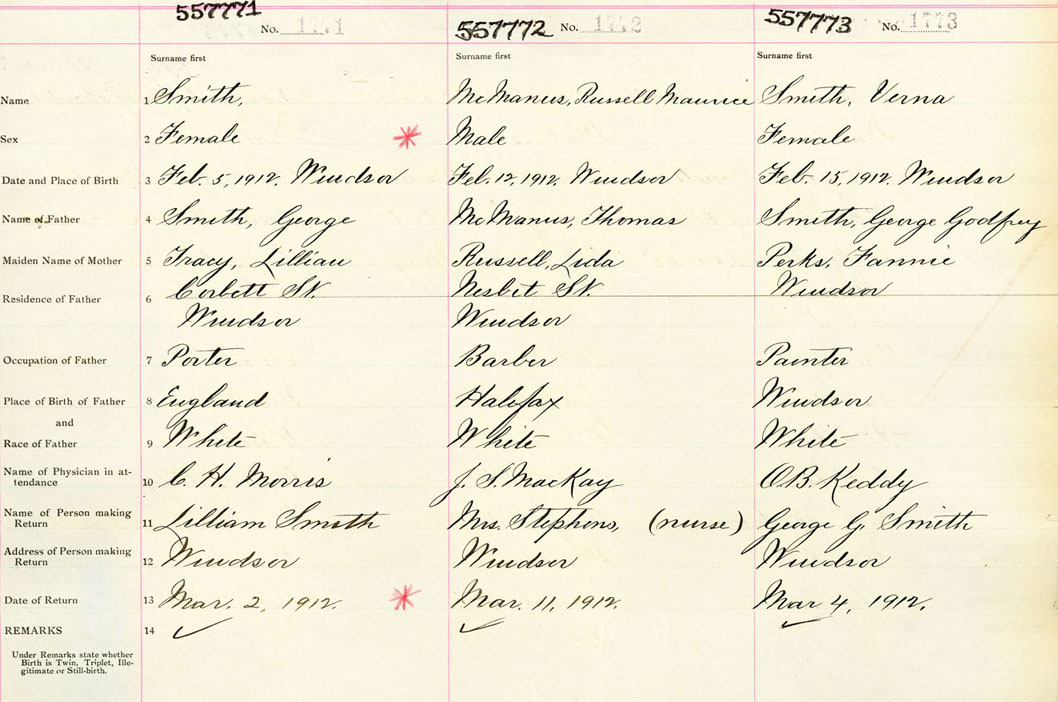 557771 No. 1771 557772 No. 1772 557773 No. 1773
Surname first Surname first Surname first
Name 1 Smith, McManus, Russell Maurice Smith, Verna
Sex 2 Female Male Female
Date and Place of Birth 3 Feb. 5, 1912. Windsor Feb. 12, 1912. Windsor Feb. 15, 1912. Windsor
Name of Father 4 Smith, George McManus, Thomas Smith, George Godfrey
Maiden Name of Mother 5 Tracy, Lillian Russell, Lida Perks, Fannie
Residence of Father 6 Corbett St. Nesbit St. Windsor
Windsor Windsor
Occupation of Father 7 Porter Barber Painter
Place of Birth of Father 8 England Halifax Windsor
and
Race of Father 9 White White White
Name of Physician in at-
tendance 10 C. H. Morris J. S. MacKay O.B. Keddy
Name of Person making
Return 11 Lilliam Smith Mrs. Stephens, (nurse) George G. Smith
Address of Person making
Return 12 Windsor Windsor Windsor
Date of Return 13 Mar. 2, 1912. Mar. 11, 1912. Mar 4, 1912.
REMARKS 14
Under Remarks state whether
Birth is Twin, Triplet, Ille-
gitimate or Still-birth.